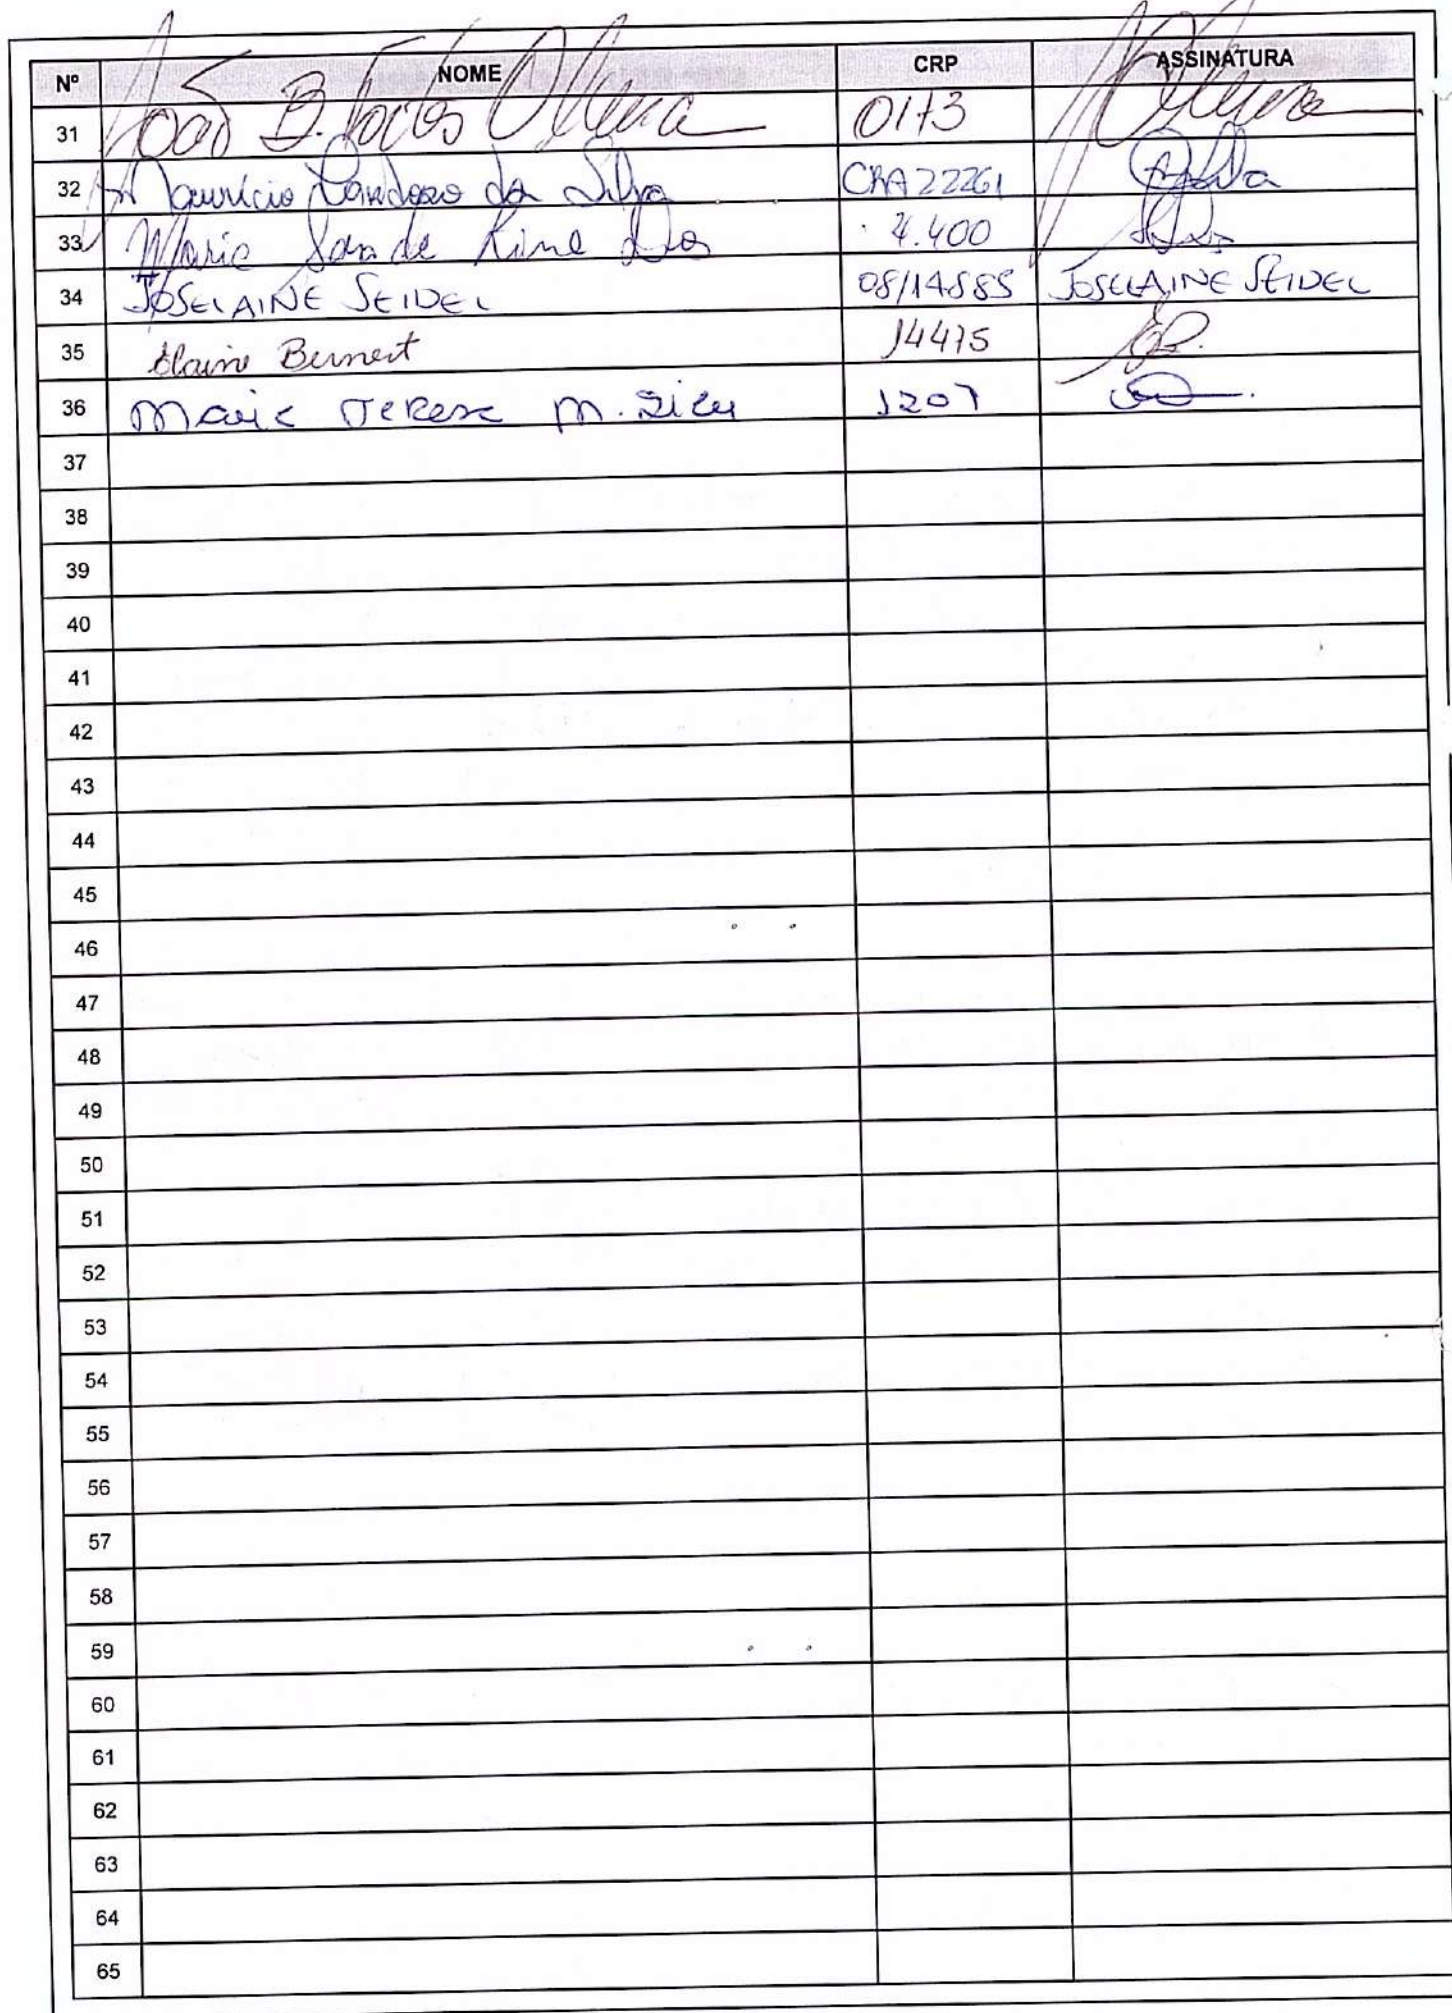 Nº NOME CRP ASSINATURA
31 João B. Fortes Oliveira 0173 Oliveira
32 Maurício Cardozo da Silva CRA 22261
33 Maria de Lima 4.400
34 JOSELAINE SEIDEL 08/14885 JOSELAINE SEIDEL
35 Elaine Bernert 14475
36 Maria Tereza M. 1207
37
38
39
40
41
42
43
44
45
46
47
48
49
50
51
52
53
54
55
56
57
58
59
60
61
62
63
64
65